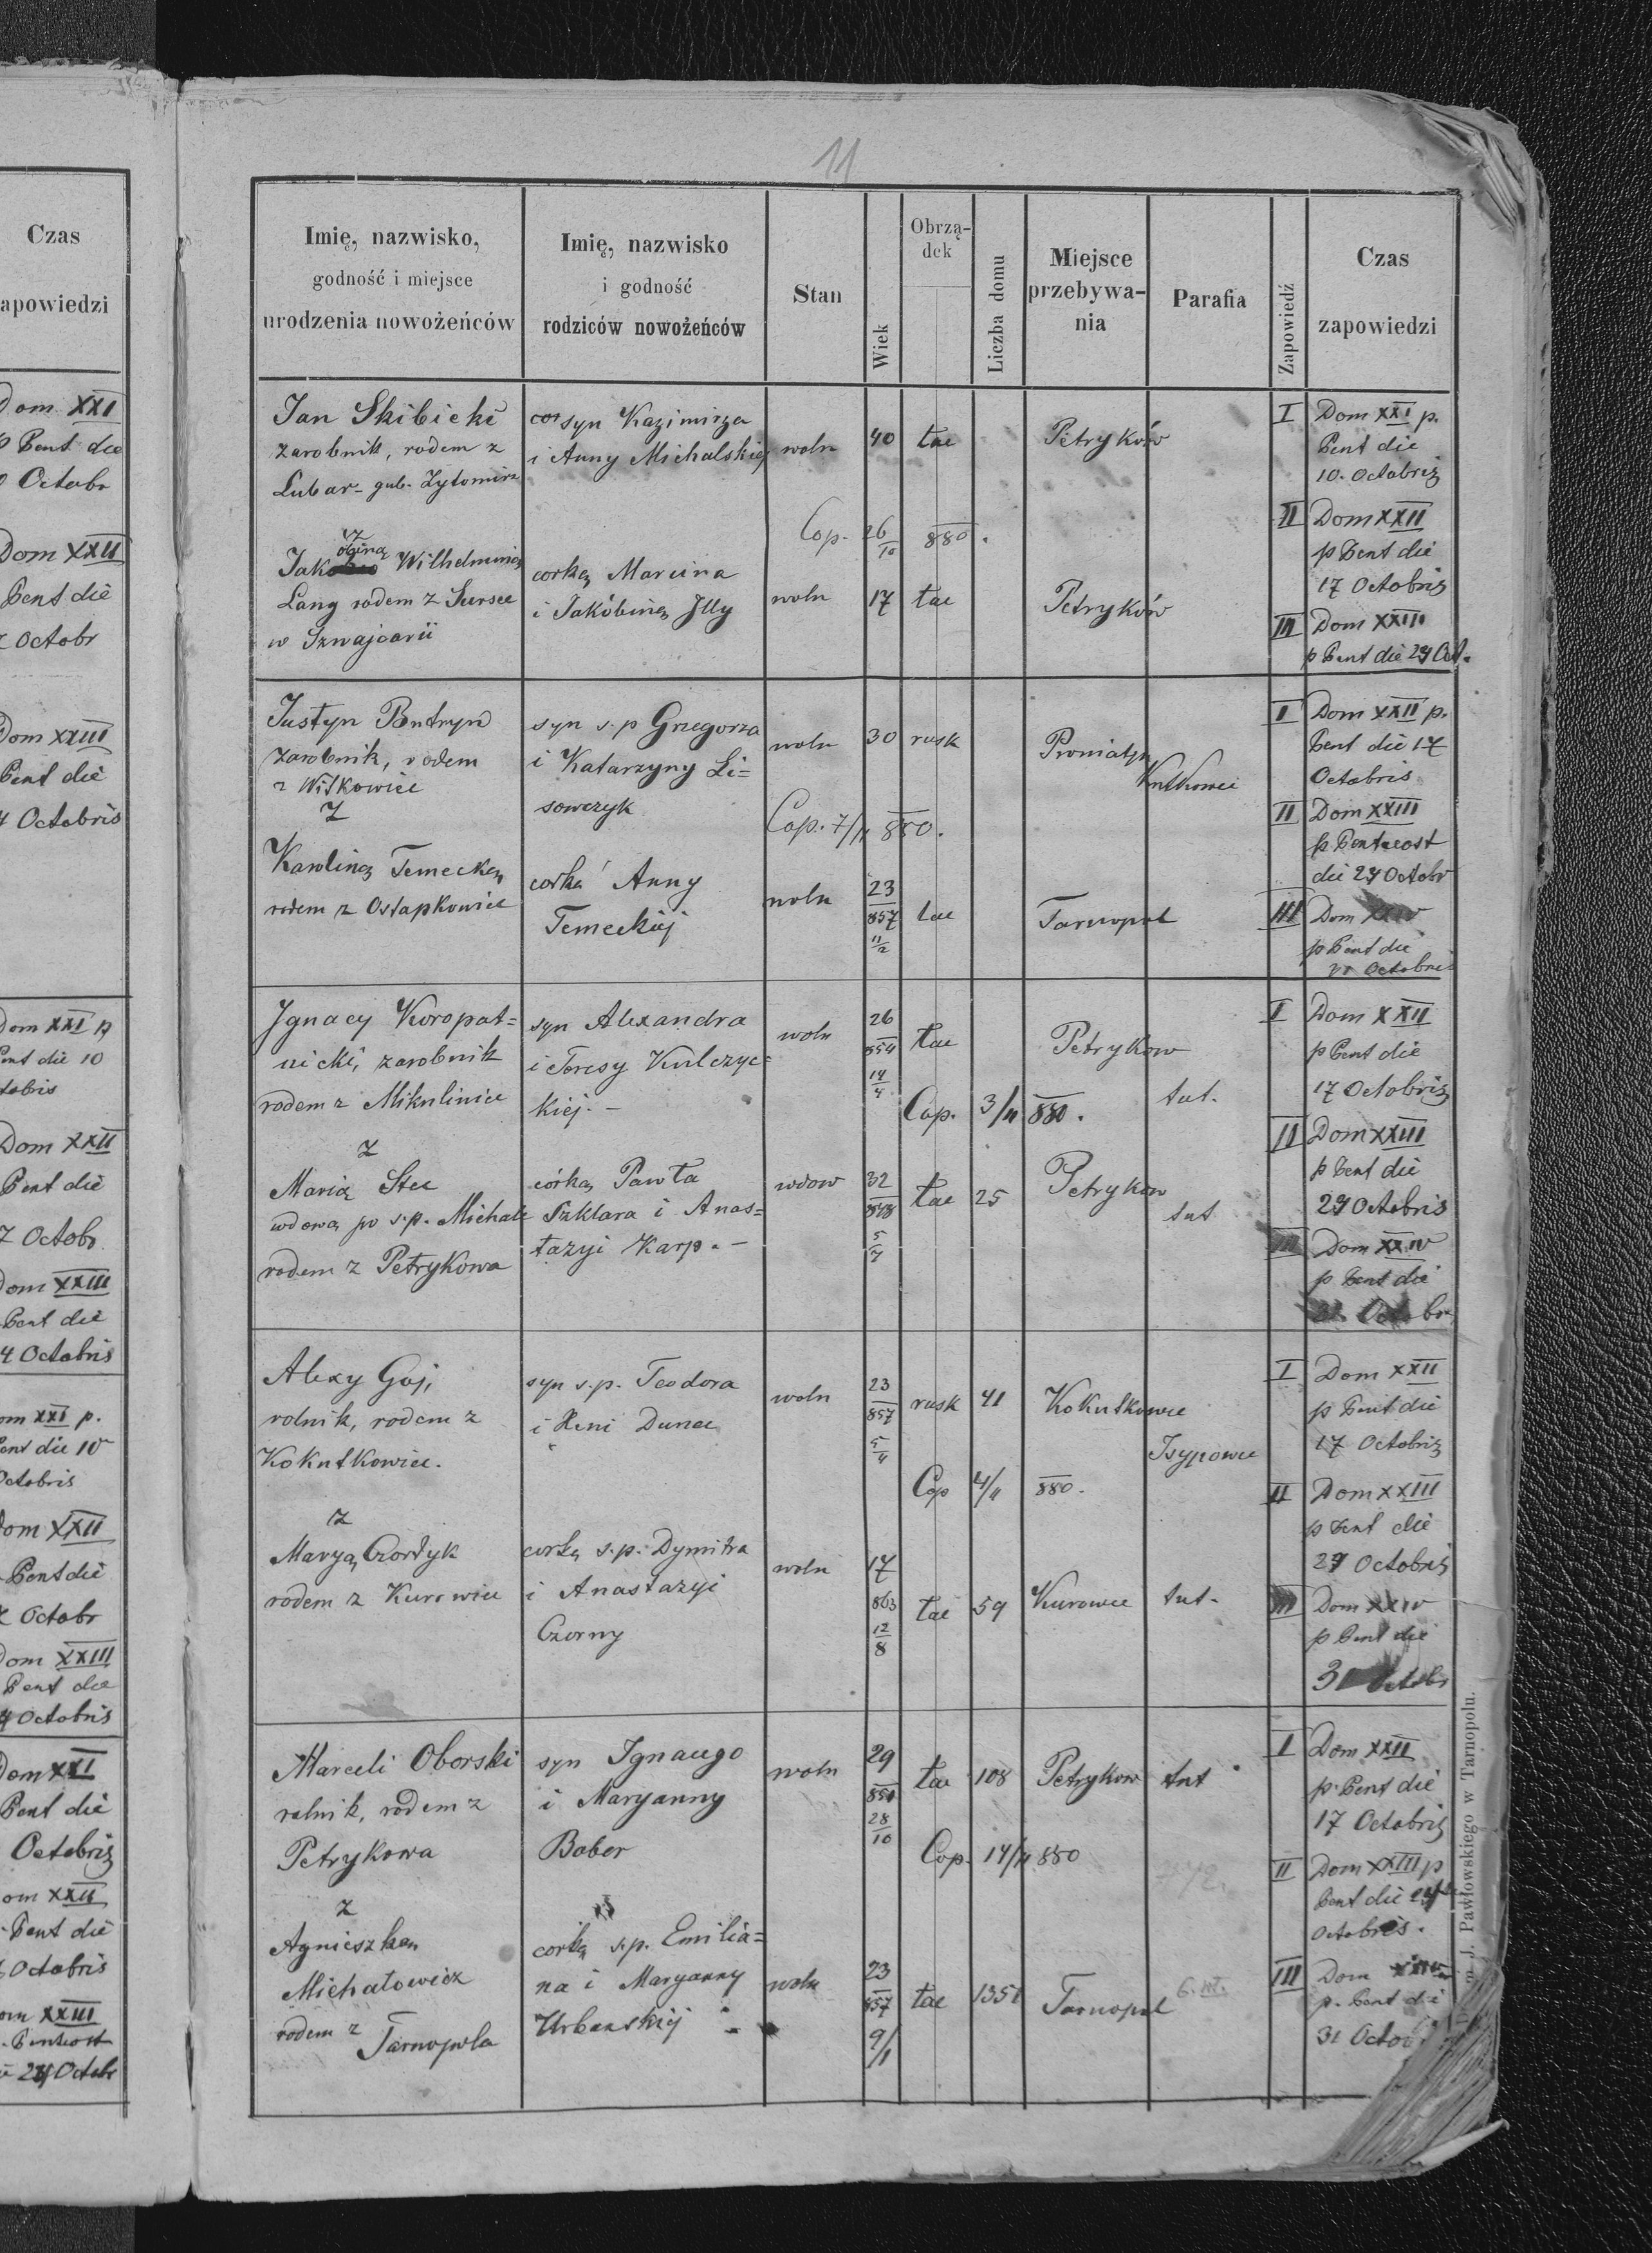 11
Czas
zapowiedzi
Dom XXI
p Pent die
Octobr
Dom XXII
Pent die
Octobr
Dom XXIII
Pent die
4 Octobris
Dom XXI p
Pent die 10
Octobris
Dom XXII
Pent die
7 Octobr
Dom XXIII
Pent die
4 Octobris
Dom XXI p.
Pent die 10
Octobris
Dom XXII
Pent die
Octobr
Dom XXIII
Pent die
4 Octobris
Dom XXI
Pent die
Octobris
Dom XXII
Pent die
Octobris
Dom XXIII
Pentecost
die 24 Octobr
Imię, nazwisko,
godność i miejsce
urodzenia nowożeńców
Imię, nazwisko
i godność
rodziców nowożeńców
Stan
Wiek
Obrzą-
dek
Liczba domu
Miejsce
przebywa-
nia
Parafia
Zapowiedź
Czas
zapowiedzi
Jan Skibicki
zarobnik, rodem z
Lubar - gub. Zytomirz
syn Kazimirza
i Anny Michalskiej
woln
40
łac
Petryków
I
Dom XXI p.
Pent die
10. Octobris
Cop. 26/10 880.
II
Dom XXII
p Pent die
17 Octobris
z
obiną
Jak Wilhelminą
Lang rodem z Sursee
w Szwajcarii
corką Marcina
i Jakóbiną Illy
woln
17
łac
Petryków
III
Dom XXIII
p Pent die 24 Oct.
Justyn Bentryn
zarobnik, rodem
z Witkowice
syn s.p Grzegorza
i Katarzyny Li=
sowczyk
woln
30
rusk
Proniatyn
Kutkowce
I
Dom XXII p.
Pent die 17
Octobris
Cop. 7/11 880.
II
Dom XXIII
p Pentecost
die 24 Octobr
z
Karoliną Temecką
rodem z Ostapkowice
corka Anny
Temeckiej
woln
23
857
11/2
łac
Tarnopol
III
Dom XXIV
p Pent die
31 Octobris
Ignacy Koropat=
nicki, zarobnik
rodem z Mikulinice
syn Alexandra
i Teresy Kulczyc=
kiej. -
woln
26
854
14/4
łac
Petrykow
tut.
I
Dom XXII
p Pent die
17 Octobris
Cop. 3/11 880.
II
Dom XXIII
p Pent die
24 Octobris
z
Marią Stec
wdową po s.p. Michale
rodem z Petrykowa
córką Pawła
Szklara i Anas=
tazyi Karp. -
wdow
32
848
5/7
łac
25
Petrykow
tut
III
Dom XXIV
p Pent die
31 Octobr
Alexy Goj,
rolnik, rodem z
Kokutkowice.
syn s.p. Teodora
i Xeni Dunec
woln
23
857
5/4
rusk
41
Kokutkowce
Isypowce
I
Dom XXII
p Pent die
17 Octobris
Cop 4/11 880.
II
Dom XXIII
p Pent die
24 Octobris
z
Maryą Czortyk
rodem z Kurowice
corką s.p. Dymitra
i Anastazyi
Czorny
woln
17
863
12/8
łac
59
Kurowce
tut.
III
Dom XXIV
p Pent die
31 Octobr
Marceli Oborski
rolnik, rodem z
Petrykowa
syn Ignacego
i Maryanny
Bober
woln
29
851
28/10
łac
108
Petrykow
tut
I
Dom XXII
p. Pent die
17 Octobris
Cop. 14/11 880
II
Dom XXIII p
Pent die 24
Octobris.
z
Agnieszką
Michałowicz
rodem z Tarnopola
corką s.p. Emilia=
na i Maryanny
Urbanskiej
woln
23
857
9/1
łac
1351
Tarnopol
III
Dom XXIV
p. Pent die
31 Octob
J. Pawłowskiego w Tarnopolu.